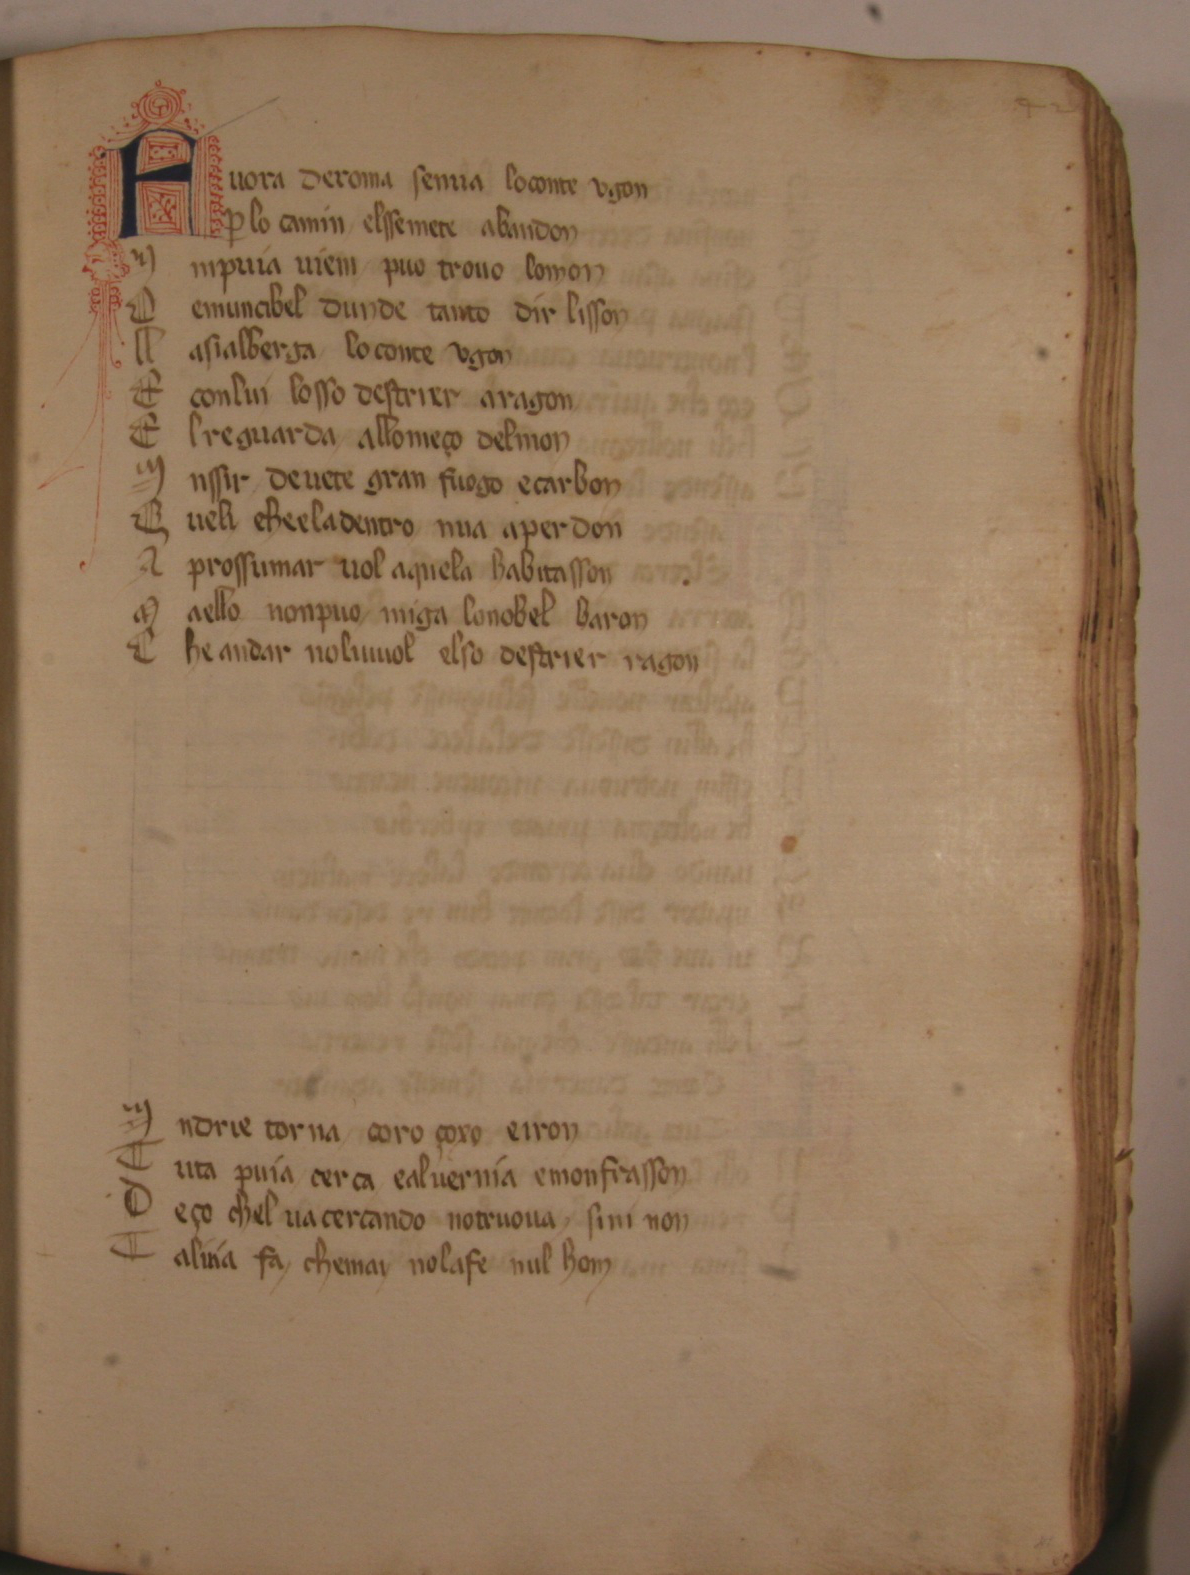 Fuora de roma sen ua lo conte vgon
Per lo camin el sse mete abandon
In puia uien puo trouo lo mon
De muncibel dunde tanto dir lisson
La si alberga lo conte vgon
E con lui losso destrier aragon
El reguarda al lomeço del mon
Inssir de uete gran fuogo e carbon
Queli che ela dentro nua a perdon
A prossumar uol a quela habitasson
Ma ello non puo miga lo nobel baron
Che andar no li uuol el so destrier ragon
Indrie torna çoro çoxo e iron
Tuta puia cerca e aluernia e monfrasson
Deço chel ua cercando no truoua si ni non
Tal uia fa che mai no la fe nul hom
42